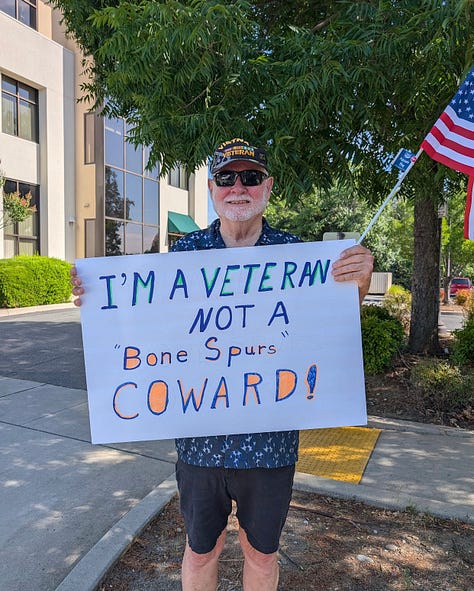 VETERAN
I'M A VETERAN
NOT A
"Bone Spurs"
COWARD!